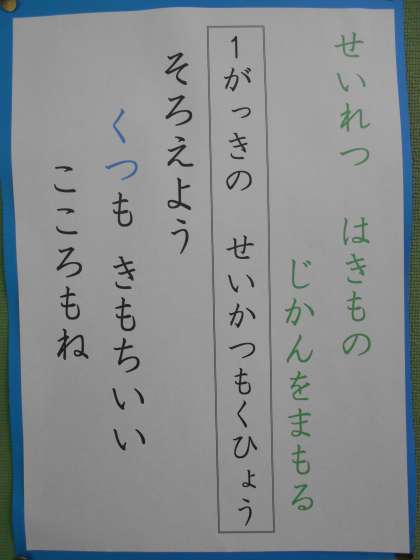 せいれつ　はきもの
じかんをまもる
1がっきの　せいかつもくひょう
そろえよう
くつも　きもちいい
こころもね